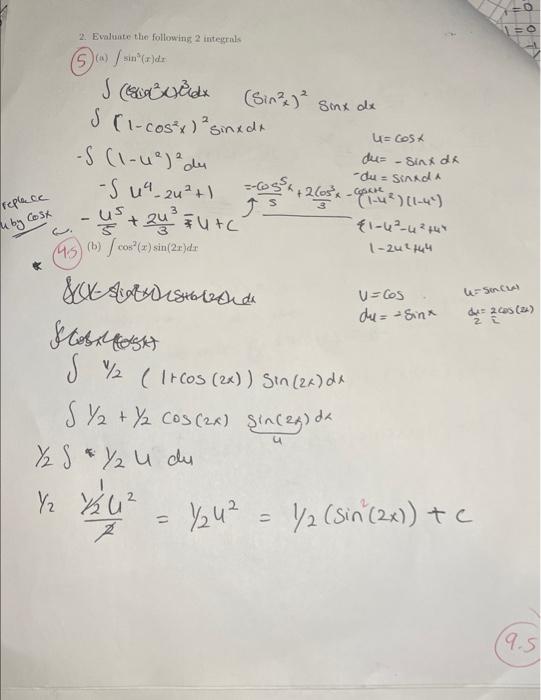 2. Evaluate the following 2 integrals
5 (a) ∫ sin⁵(x)dx
(sin²x)² sinx dx
∫ (1-cos²x)² sinx dx
u = cosx
-∫ (1-u²)² du
du = -sinx dx
-du = sinx dx
-∫ u⁴ - 2u² + 1
= -cos⁵x/5 + 2cos³x/3 - cosx
(1-u²)(1-u²)
replace u by cosx
-u⁵/5 + 2u³/3 - u + c
1-u²-u²+u⁴
1-2u²+u⁴
4.5 (b) ∫ cos²(x) sin(2x)dx
u = cos
du = -sinx
u = sin(2x)
du/2 = 2cos(2x)/2
∫ 1/2 (1+cos(2x)) sin(2x) dx
∫ 1/2 + 1/2 cos(2x) sin(2x) dx
u
1/2 ∫ 1/2 u du
1/2 1/2u²/2 = 1/2u² = 1/2 (sin²(2x)) + c
9.5